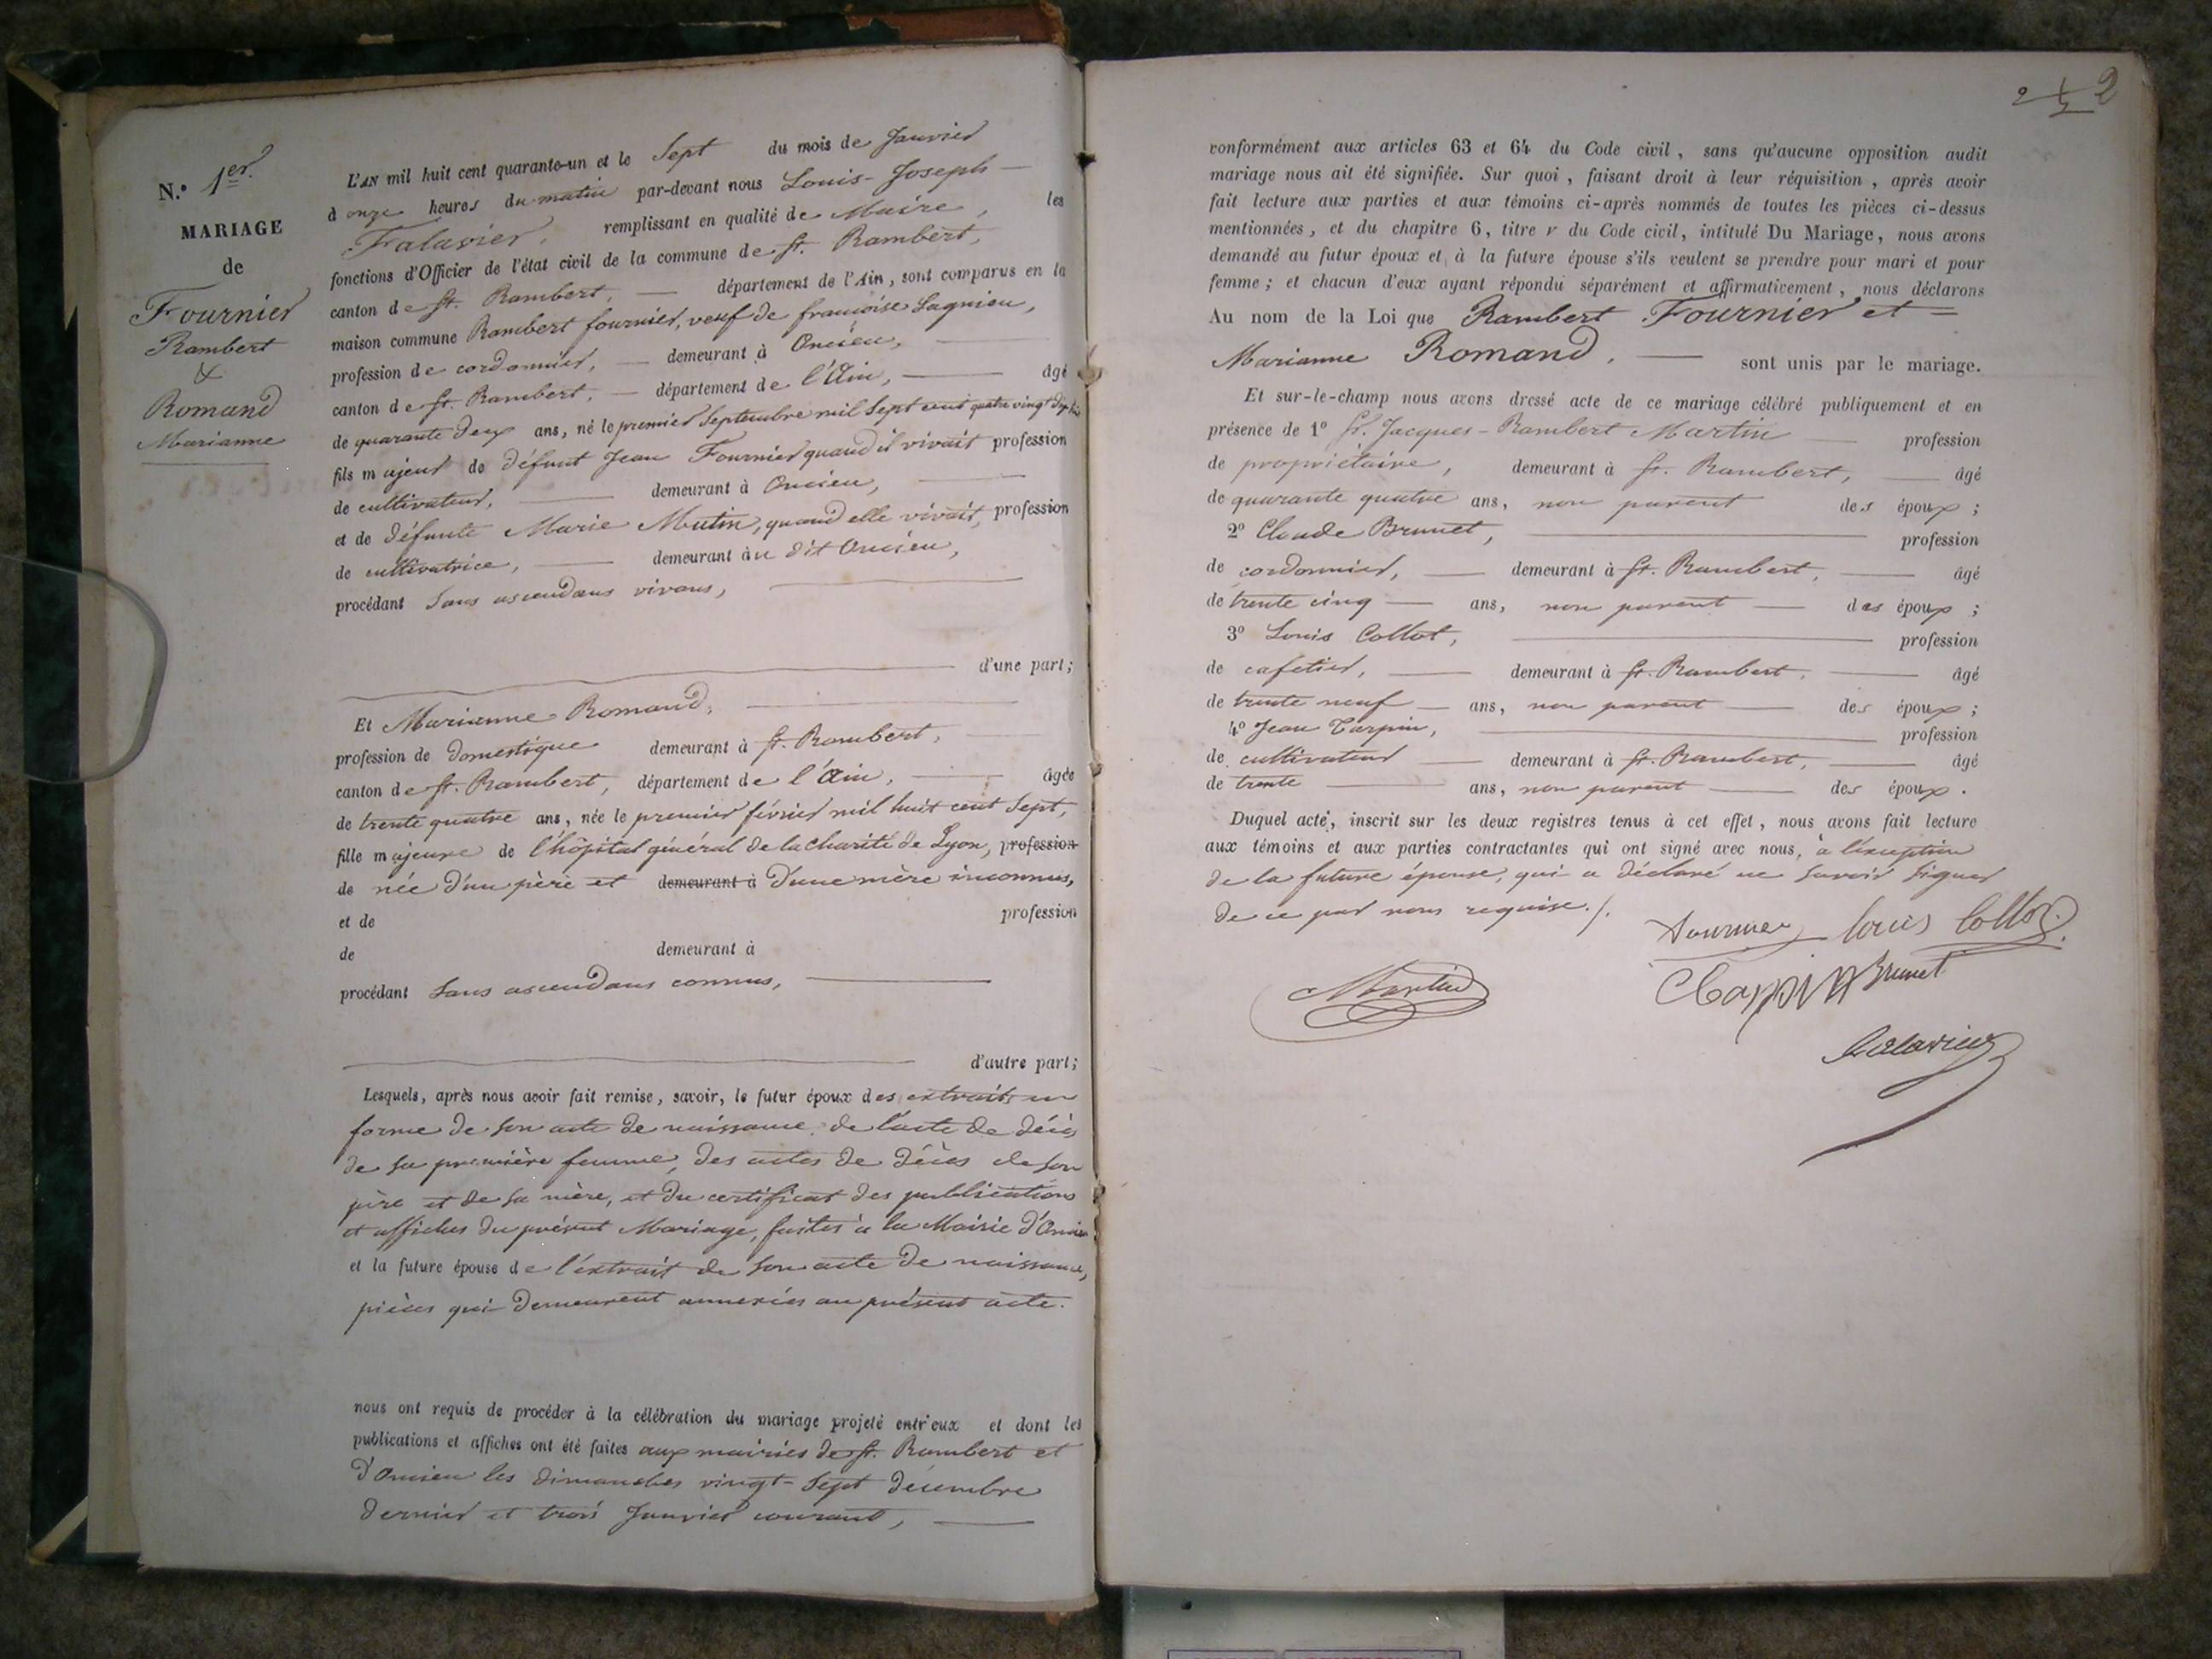 N.º 1er.
MARIAGE
de
Fournier
Rambert
&
Romand
Marianne
L'AN mil huit cent quarante-un et le Sept du mois de Janvier
à onze heures du matin par-devant nous Louis-Joseph
Falavier, remplissant en qualité de Maire, les
fonctions d'Officier de l'état civil de la commune de St. Rambert,
canton de St. Rambert, département de l'Ain, sont comparus en la
maison commune Rambert fournier, veuf de francoise Lagnieu,
profession de cordonnier, demeurant à Oncieu,
canton de St. Rambert, département de l'Ain, âgé
de quarante deux ans, né le premier Septembre mil sept cent quatre vingt dix huit
fils majeur de défunt Jean Fournier quand il vivait profession
de cultivateur, demeurant à Oncieu,
et de défunte Marie Mutin, quand elle vivait, profession
de cultivatrice, demeurant au dit Oncieu,
procédant sans ascendans vivans,
d'une part;
Et Marianne Romand,
profession de domestique demeurant à St. Rambert,
canton de St. Rambert, département de l'Ain, âgée
de trente quatre ans, née le premier février mil huit cent Sept,
fille majeure de l'hôpital général de la Charité de Lyon, profession
de née d'un père et demeurant à d'une mère inconnus,
et de profession
de demeurant à
procédant sans ascendans connus,
d'autre part;
Lesquels, après nous avoir fait remise, savoir, le futur époux des extraits en
forme de son acte de naissance, de l'acte de décès
de sa première femme, des actes de décès de son
père et de sa mère, et du certificat des publications
et affiches du présent Mariage, faites à la Mairie d'Oncieu
et la future épouse de l'extrait de son acte de naissance,
pièces qui demeurent annexées au présent acte.
nous ont requis de procéder à la célébration du mariage projeté entr'eux et dont les
publications et affiches ont été faites aux mairies de St. Rambert et
d'Oncieu les dimanches vingt-Sept décembre
dernier et trois Janvier courant,
2 2
conformément aux articles 63 et 64 du Code civil, sans qu'aucune opposition audit
mariage nous ait été signifiée. Sur quoi, faisant droit à leur réquisition, après avoir
fait lecture aux parties et aux témoins ci-après nommés de toutes les pièces ci-dessus
mentionnées, et du chapitre 6, titre v du Code civil, intitulé Du Mariage, nous avons
demandé au futur époux et à la future épouse s'ils veulent se prendre pour mari et pour
femme; et chacun d'eux ayant répondu séparément et affirmativement, nous déclarons
Au nom de la Loi que Rambert Fournier et
Marianne Romand, sont unis par le mariage.
Et sur-le-champ nous avons dressé acte de ce mariage célébré publiquement et en
présence de 1º Sr. Jacques-Rambert Martin profession
de propriétaire, demeurant à St. Rambert, âgé
de quarante quatre ans, non parent des époux;
2º Claude Brunet, profession
de cordonnier, demeurant à St. Rambert, âgé
de trente cinq ans, non parent des époux;
3º Louis Collot, profession
de cafetier, demeurant à St. Rambert, âgé
de trente neuf ans, non parent des époux;
4º Jean Carpin, profession
de cultivateur demeurant à St. Rambert, âgé
de trente ans, non parent des époux.
Duquel acte, inscrit sur les deux registres tenus à cet effet, nous avons fait lecture
aux témoins et aux parties contractantes qui ont signé avec nous, à l'exception
de la future épouse, qui a déclaré ne savoir signer
de ce par nous requise./.
Fournier Louis Collot
Martin Brunet
Falavier